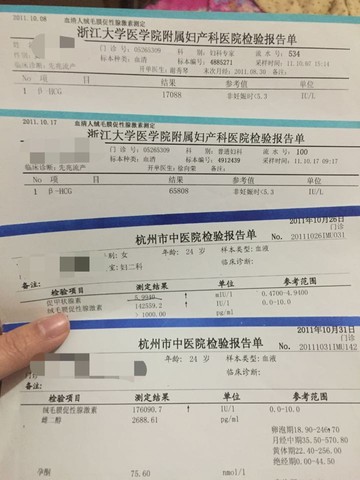 2011.10.08 血清人绒毛膜促性腺激素测定
浙江大学医学院附属妇产科医院检验报告单
门 诊 号：05265309 科 别：妇科专家 流 水 号：534
标本类型：血清 标本编号：4885271 采样时间：11.10.07 15:14
临床诊断：先兆流产 开单医生：谢秀琴 末次月经：2011.08.30
No 项 目 结果 参考范围 单位
1 β-HCG 17088 非妊娠时<5.3 IU/L
2011.10.17 血清人绒毛膜促性腺激素测定
浙江大学医学院附属妇产科医院检验报告单
门 诊 号：05265309 科 别：普通妇科 流 水 号：100
标本类型：血清 标本编号：4912439 采样时间：11.10.17 09:17
临床诊断：先兆流产 开单医生：徐向荣
No 项 目 结果 参考范围 单位
1 β-HCG 65808 非妊娠时<5.3 IU/L
2011年10月26日
杭州市中医院检验报告单 门诊
No. 20111026IMU031
别：女 年龄：24 岁 样本类型：血液
室：妇二科 临床诊断：
备注：
检验项目 测定结果 单位 参考范围
促甲状腺素 5.9940 ↑ mIU/l 0.4700-4.9400
绒毛膜促性腺激素 142559.2 ↑ IU/l 0.0-10.0
>1000.00 pg/ml
2011年10月31日
杭州市中医院检验报告单 门诊
No. 20111031IMU142
年龄：24 岁 样本类型：血液
临床诊断：
备注：
检验项目 测定结果 单位 参考范围
绒毛膜促性腺激素 176090.7 ↑ IU/l 0.0-10.0
雌二醇 2688.61 pg/ml
卵泡期18.90-246.70
月经中期35.50-570.80
黄体期22.40-256.00
绝经期0.00-44.50
孕酮 75.60 nmol/l